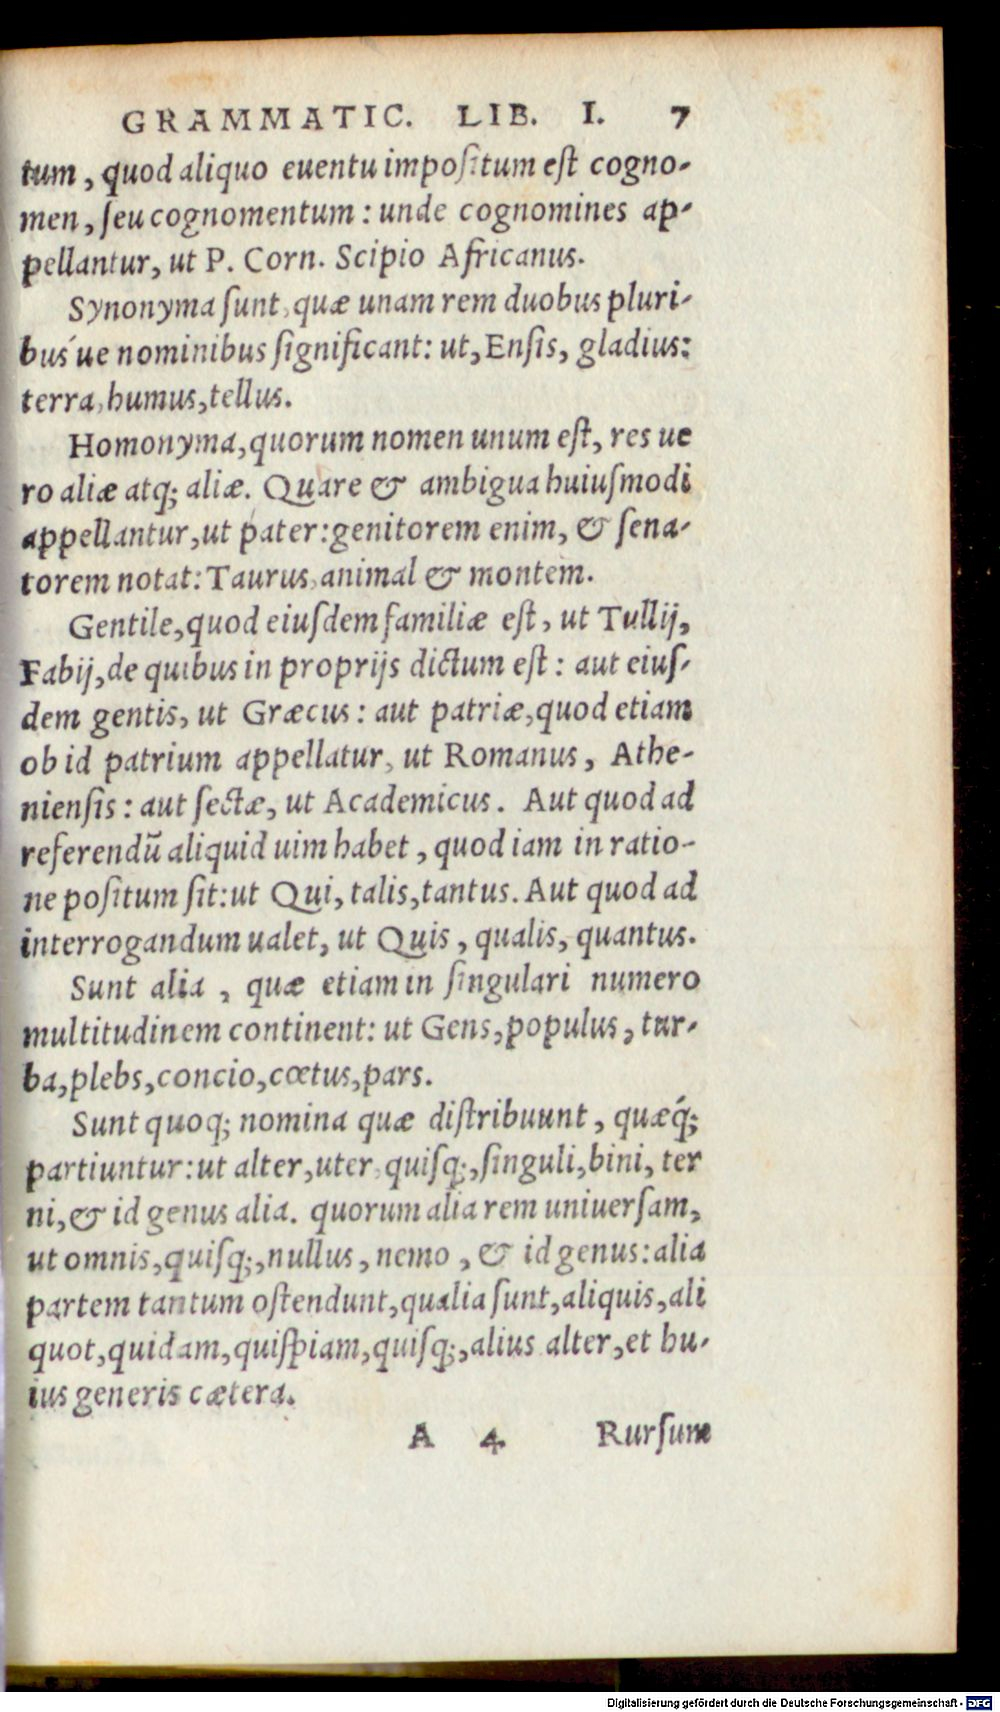 GRAMMATIC. LIB. I. 7
tum, quod aliquo euentu impoſitum eſt cogno-
men, ſeu cognomentum: unde cognomines ap-
pellantur, ut P. Corn. Scipio Africanus.
Synonyma ſunt, quæ unam rem duobus pluri-
bus´ue nominibus ſignificant: ut, Enſis, gladius:
terra, humus, tellus.
Homonyma, quorum nomen unum eſt, res ue
ro aliæ atq; aliæ. Quare & ambigua huiuſmodi
appellantur, ut pater: genitorem enim, & ſena-
torem notat: Taurus, animal & montem.
Gentile, quod eiuſdem familiæ eſt, ut Tullij,
Fabij, de quibus in proprijs dictum eſt: aut eiuſ-
dem gentis, ut Græcus: aut patriæ, quod etiam
ob id patrium appellatur, ut Romanus, Athe-
nienſis: aut ſectæ, ut Academicus. Aut quod ad
referendũ aliquid uim habet, quod iam in ratio-
ne poſitum ſit: ut Qui, talis, tantus. Aut quod ad
interrogandum ualet, ut Quis, qualis, quantus.
Sunt alia, quæ etiam in ſingulari numero
multitudinem continent: ut Gens, populus, tur-
ba, plebs, concio, cœtus, pars.
Sunt quoq; nomina quæ diſtribuunt, quæq́;
partiuntur: ut alter, uter, quiſq;, ſinguli, bini, ter
ni, & id genus alia. quorum alia rem uniuerſam,
ut omnis, quiſq;, nullus, nemo, & id genus: alia
partem tantum oſtendunt, qualia ſunt, aliquis, ali
quot, quidam, quiſpiam, quiſq;, alius alter, et hu-
ius generis cætera.
A 4 Rurſum
Digitalisierung gefördert durch die Deutsche Forschungsgemeinschaft - DFG